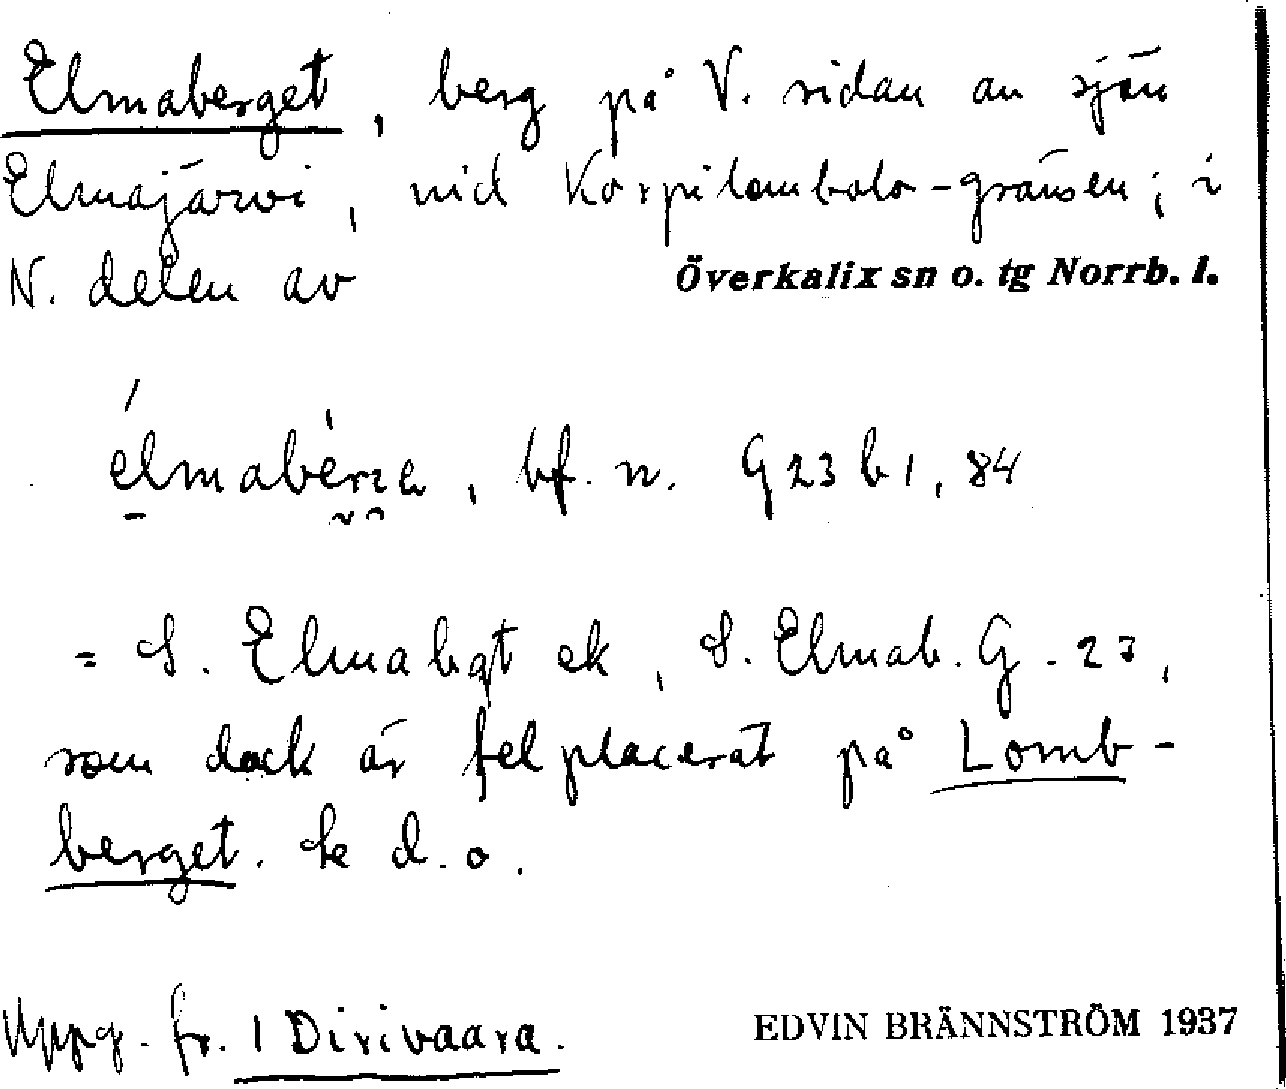 Elmaberget, berg på V. sidan av sjön
Elmajärvi, vid Korpilombolo-gränsen; i
N. delen av Överkalix sn o. tg Norrb. l.
élmabèrʒe, bf. n. G 23 b 1, 84
= S. Elmabgt ek, S. Elmab. G. 23,
som dock är felplacerat på Lomb-
berget. Se d. o.
Uppg. fr. 1 Dirivaara.
EDVIN BRÄNNSTRÖM 1937